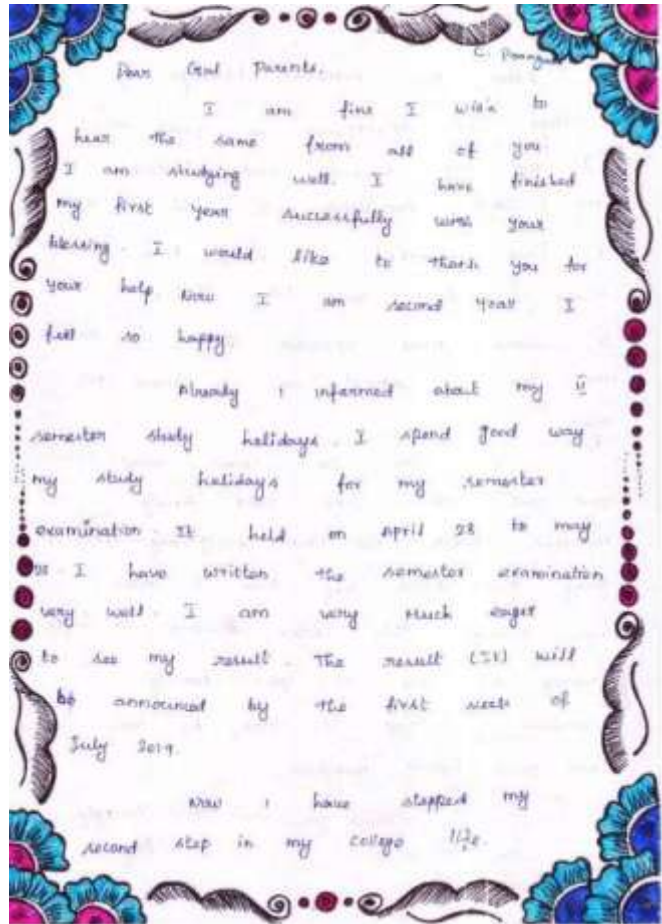 C.
Dear God Parents,
I am fine I wish to
hear the same from all of you.
I am studying well. I have finished
my first year successfully with your
blessing. I would like to thank you for
your help. Now I am second year I
feel so happy.
Already I informed about my II
semester study holidays. I spend good way
my study holidays for my semester
examination. It held on April 23 to may
I have written the semester examination
very well. I am very much eager
to see my result. The result (II) will
be announced by the first week of
July 2019.
Now I have stepped my
second step in my college life.